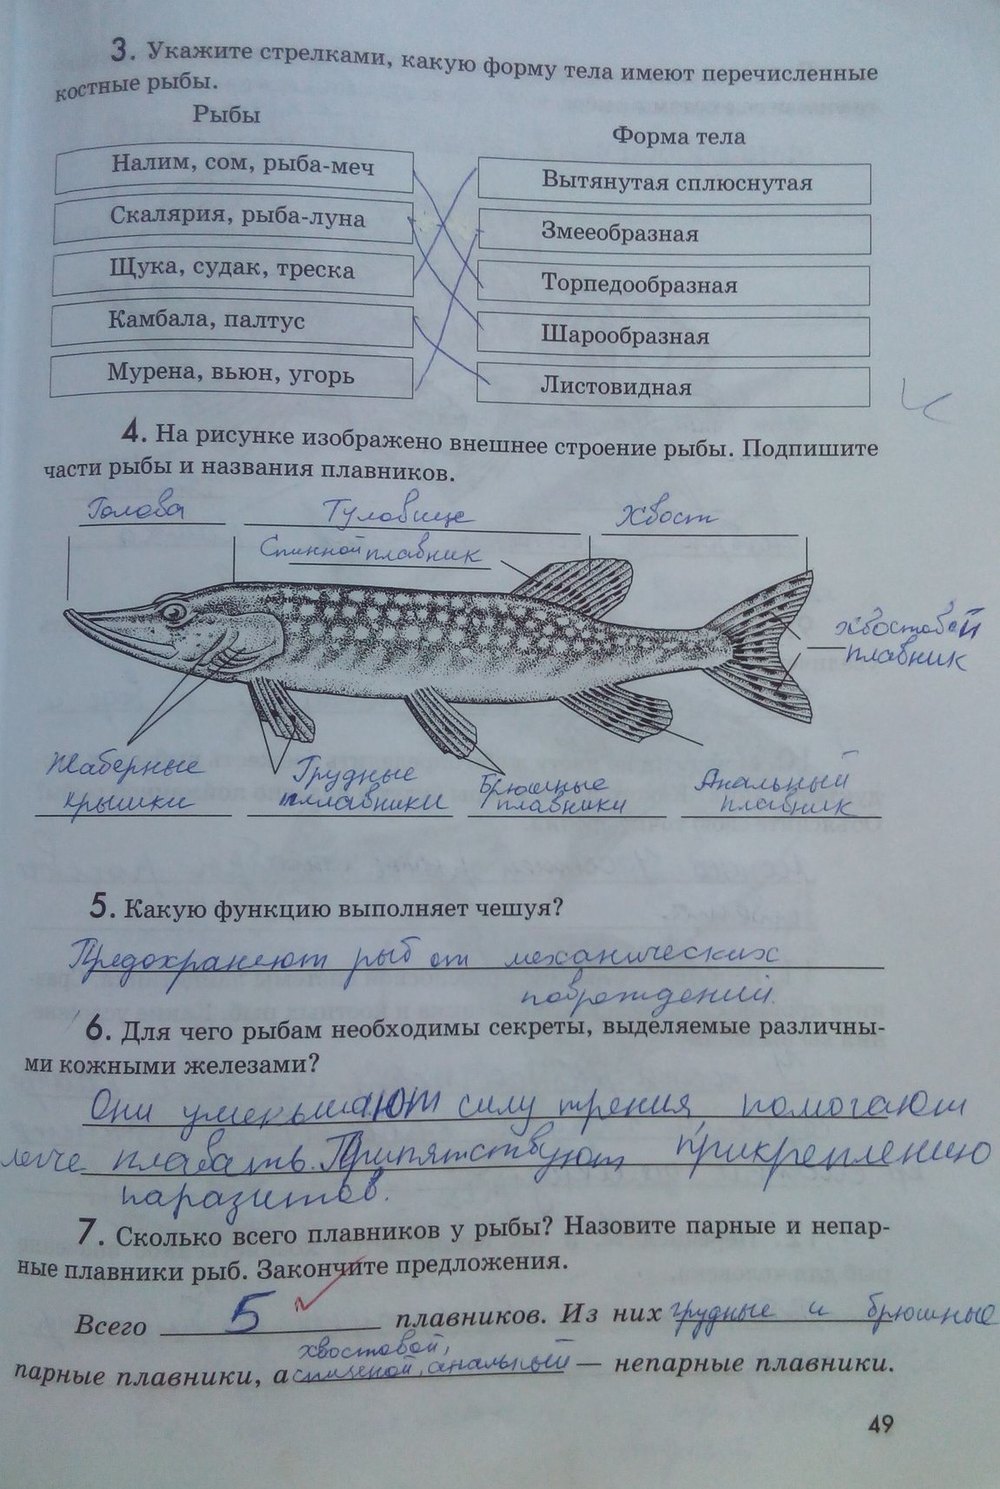 3. Укажите стрелками, какую форму тела имеют перечисленные
костные рыбы.
Рыбы
Форма тела
Налим, сом, рыба-меч
Вытянутая сплюснутая
Скалярия, рыба-луна
Змееобразная
Щука, судак, треска
Торпедообразная
Камбала, палтус
Шарообразная
Мурена, вьюн, угорь
Листовидная
4. На рисунке изображено внешнее строение рыбы. Подпишите
части рыбы и названия плавников.
Голова Туловище Хвост
Спинной плавник
Хвостовой
плавник
Жаберные
крышки
Грудные
плавники
Брюшные
плавники
Анальный
плавник
5. Какую функцию выполняет чешуя?
Предохраняют рыб от механических
повреждений.
6. Для чего рыбам необходимы секреты, выделяемые различны-
ми кожными железами?
Они уменьшают силу трения, помогают
легче плавать. Припятствуют прикреплению
паразитов.
7. Сколько всего плавников у рыбы? Назовите парные и непар-
ные плавники рыб. Закончите предложения.
Всего 5 плавников. Из них грудные и брюшные
хвостовой,
парные плавники, а спиной, анальный — непарные плавники.
49